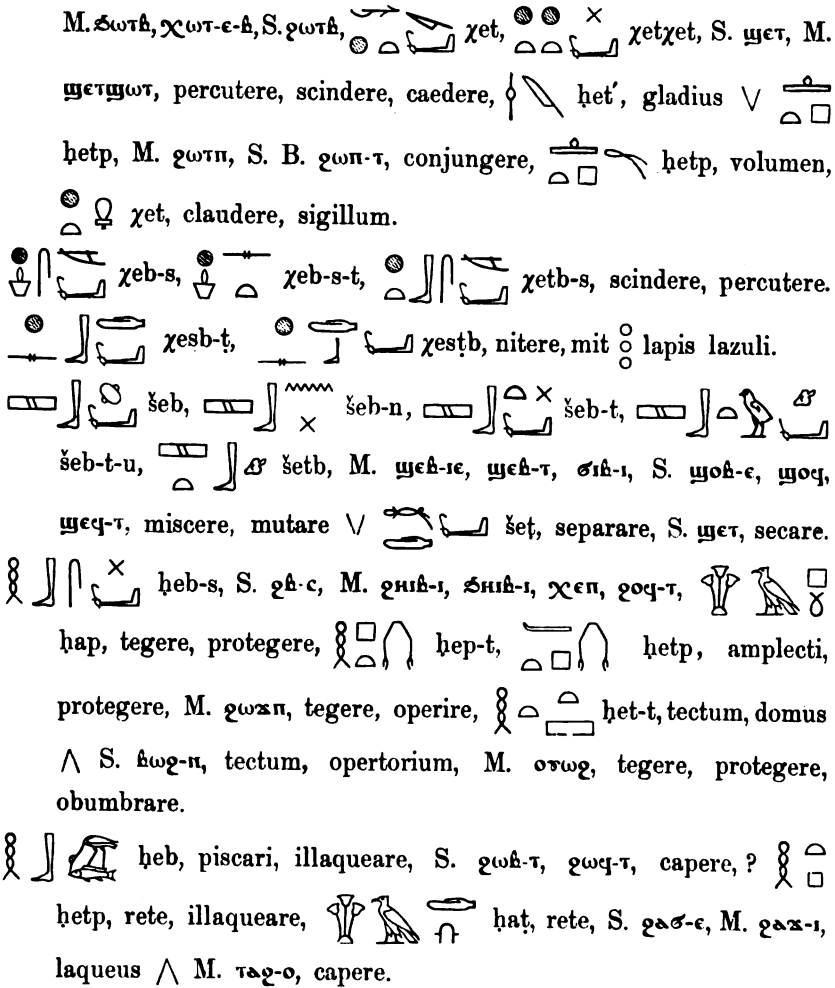 M. ϧⲱⲧⲃ, ⲭⲱⲧ-ⲉ-ⲃ, S. ϩⲱⲧⲃ, χet, χetχet, S. ϣⲉⲧ, M.
ϣⲉⲧϣⲱⲧ, percutere, scindere, caedere, ḥet′, gladius ∨
ḥetp, M. ϩⲱⲧⲡ, S. B. ϩⲱⲡ-ⲧ, conjungere, ḥetp, volumen,
χet, claudere, sigillum.
χeb-s, χeb-s-t, χetb-s, scindere, percutere.
χesb-ṭ, χesṭb, nitere, mit lapis lazuli.
šeb, šeb-n, šeb-t,
šeb-t-u, šetb, M. ϣⲉⲃ-ⲓⲉ, ϣⲉⲃ-ⲧ, ϭⲓⲃ-ⲓ, S. ϣⲟⲃ-ⲉ, ϣⲟϥ,
ϣⲉϥ-ⲧ, miscere, mutare ∨ šeṭ, separare, S. ϣⲉⲧ, secare.
ḥeb-s, S. ϩⲃ-ⲥ, M. ϩⲏⲓⲃ-ⲓ, ϧⲏⲓⲃ-ⲓ, ⲭⲉⲡ, ϩⲟϥ-ⲧ,
ḥap, tegere, protegere, ḥep-t, ḥetp, amplecti,
protegere, M. ϩⲱϫⲡ, tegere, operire, ḥet-t, tectum, domus
∧ S. ⲃⲱϩ-ⲛ, tectum, opertorium, M. ⲟⲩⲱϩ, tegere, protegere,
obumbrare.
ḥeb, piscari, illaqueare, S. ϩⲱⲃ-ⲧ, ϩⲱϥ-ⲧ, capere, ?
ḥetp, rete, illaqueare, ḥaṭ, rete, S. ϩⲁϭ-ⲉ, M. ϩⲁϫ-ⲓ,
laqueus ∧ M. ⲧⲁϩ-ⲟ, capere.